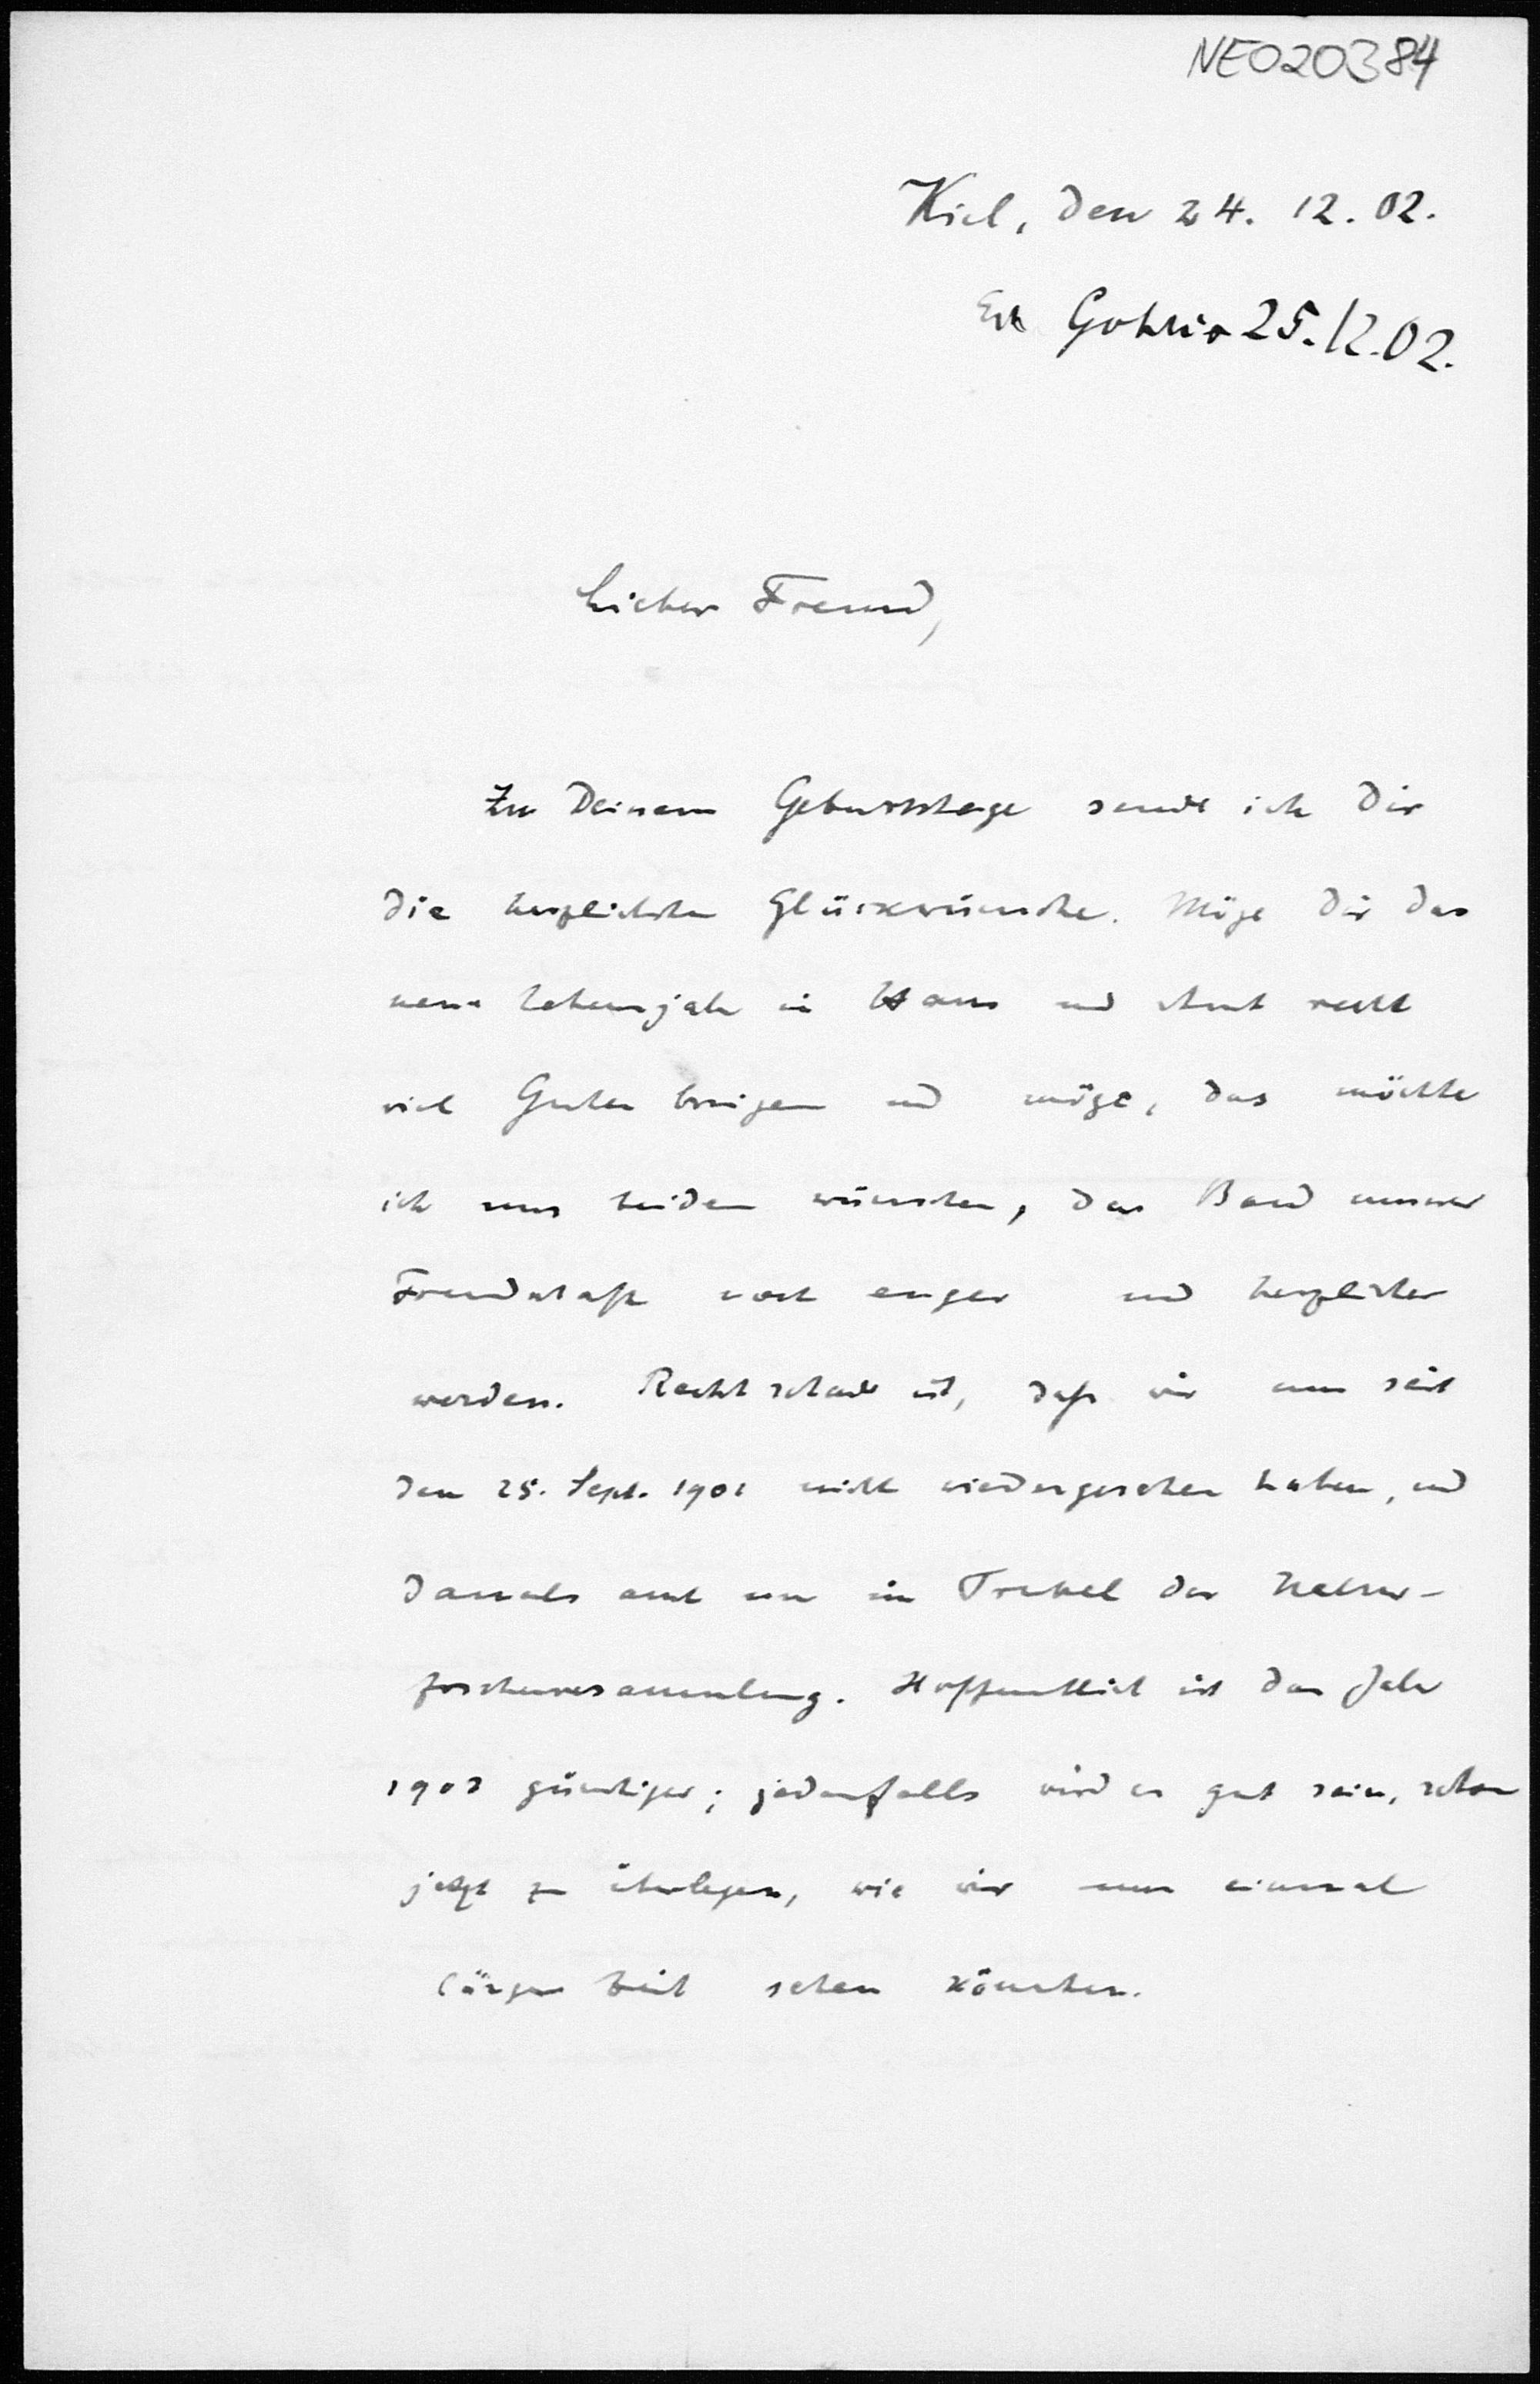 NE020384
Kiel, den 24. 12. 02.
Erh Gohlis 25.12.02.
Lieber Freund,
Zu Deinem Geburtstage sende ich Dir
die herzlichsten Glückwünsche. Möge Dir das
neue Lebensjahr in Haus und Amt recht
viel Gutes bringen und möge, das möchte
ich uns beiden wünschen, das Band unserer
Freundschaft noch enger und herzlicher
werden. Recht schade ist, daß wir uns seit
dem 25. Sept. 1901 nicht wiedergesehen haben, und
damals auch nur im Trubel der Natur-
forscherversammlung. Hoffentlich ist das Jahr
1903 günstiger; jedenfalls wird es gut sein, schon
jetzt zu überlegen, wie wir uns einmal
längere Zeit sehen könnten.